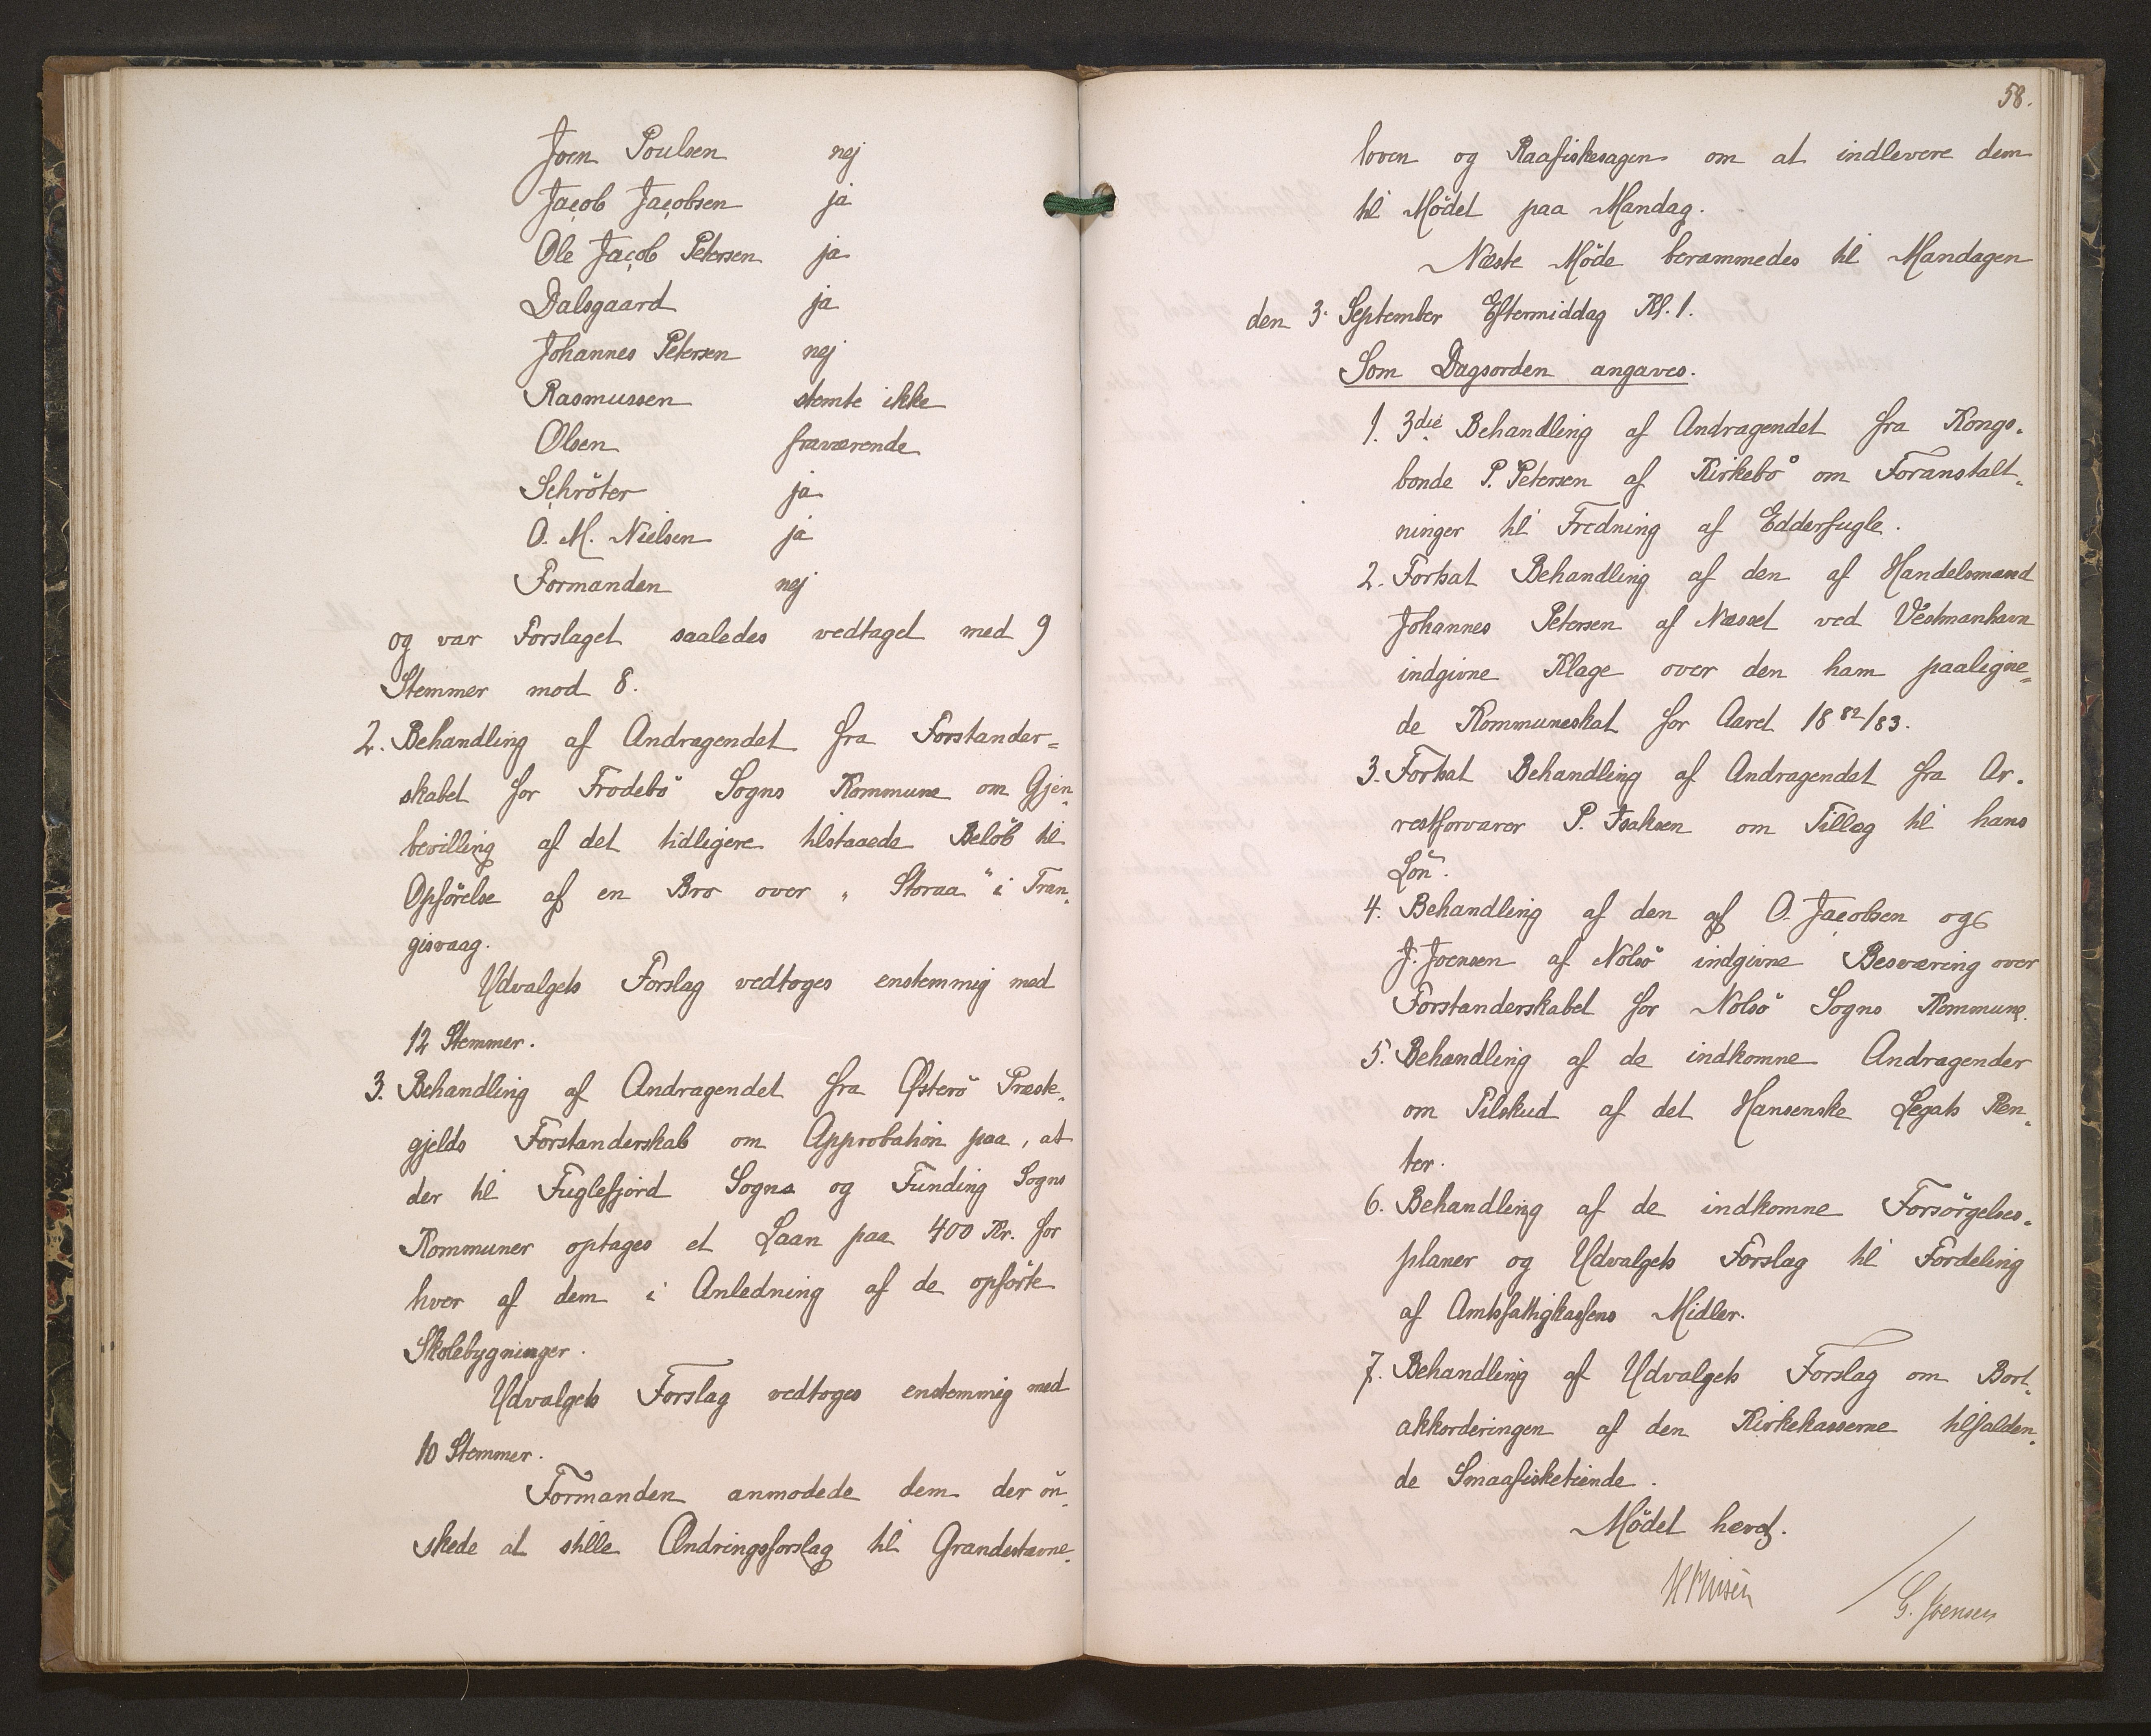 Joen Poulsen nej
Jacob Jacobsen ja
Ole Jacob Petersen ja
Dalsgaard ja
Johannes Petersen nej
Rasmussen stemte ikke
Olsen fraværende
Schröter ja
O. M. Nielsen ja
Formanden nej
og var Forslaget saaledes vedtaget med 9
Stemmer mod 8.
2. Behandling af Andragendet fra Forstander=
skabet for Frodebö Sogns Kommune om Gjen-
bevilling af det tidligere tilstaaede Belöb til
Opförelse af en Bro over „Storaa" i Tran-
gisvaag.
Udvalgets Forslag vedtoges enstemmig med
12 Stemmer.
3. Behandling af Andragendet fra Østerö Præste-
gjelds Forstanderskab om Approbation paa, at
der til Fuglefjord Sogns og Funding Sogns
Kommuner optages et Laan paa 400 Kr. for
hver af dem i Anledning af de opförte
Skolebygninger.
Udvalgets Forslag vedtoges enstemmig med
10 Stemmer.
Formanden anmodede dem der ön-
skede at stille Ændringsforslag til Grandestævne-
58.
loven og Raafiskesagen om at indlevere dem
til Mödet paa Mandag.
Næste Möde berammedes til Mandagen
den 3. September Eftermiddag Kl. 1.
Som Dagsorden angaves.
1. 3die Behandling af Andragendet fra Kongs-
bonde P. Petersen af Kirkebö om Foranstalt-
ninger til Fredning af Edderfugle.
2. Fortsat Behandling af den af Handelsmand
Johannes Petersen af Næsset ved Vestmanhavn
indgivne Klage over den ham paaligne=
de Kommuneskat for Aaret 1882/83.
3. Fortsat Behandling af Andragendet fra Ar-
restforvarer P. Isaksen om Tillæg til hans
Lön.
4. Behandling af den af O. Jacobsen og
J. Joensen af Nolsö indgivne Besværing over
Forstanderskabet for Nolsö Sogns Kommune.
5. Behandling af de indkomne Andragender
om Tilskud af det Hansenske Legats Ren-
ter.
6. Behandling af de indkomne Forsörgelses-
planer og Udvalgets Forslag til Fordeling
af Amtsfattigkassens Midler.
7. Behandling af Udvalgets Forslag om Bort-
akkorderingen af den Kirkekasserne tilfalden-
de Smaafisketiende.
Mödet hævet.
G. Joensen